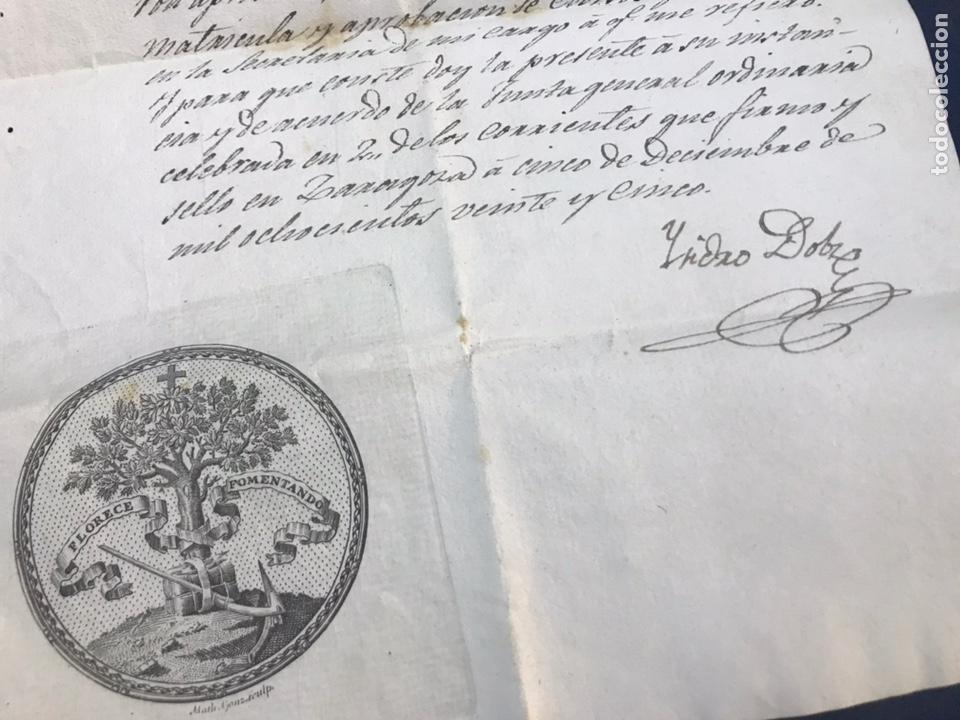 matricula y aprobacion se
en la Secretaria de mi cargo á qe. me refiero.
Y para que conste doy la presente á su instan-
cia y de acuerdo de la Junta general ordinaria
celebrada en de los corrientes que firmo y
sello en Zaragoza á cinco de Deciembre de
mil ochocientos veinte y cinco.
Ysidro Dolz
FLORECE FOMENTANDO
Math. Gonz. sculp.
todocoleccion